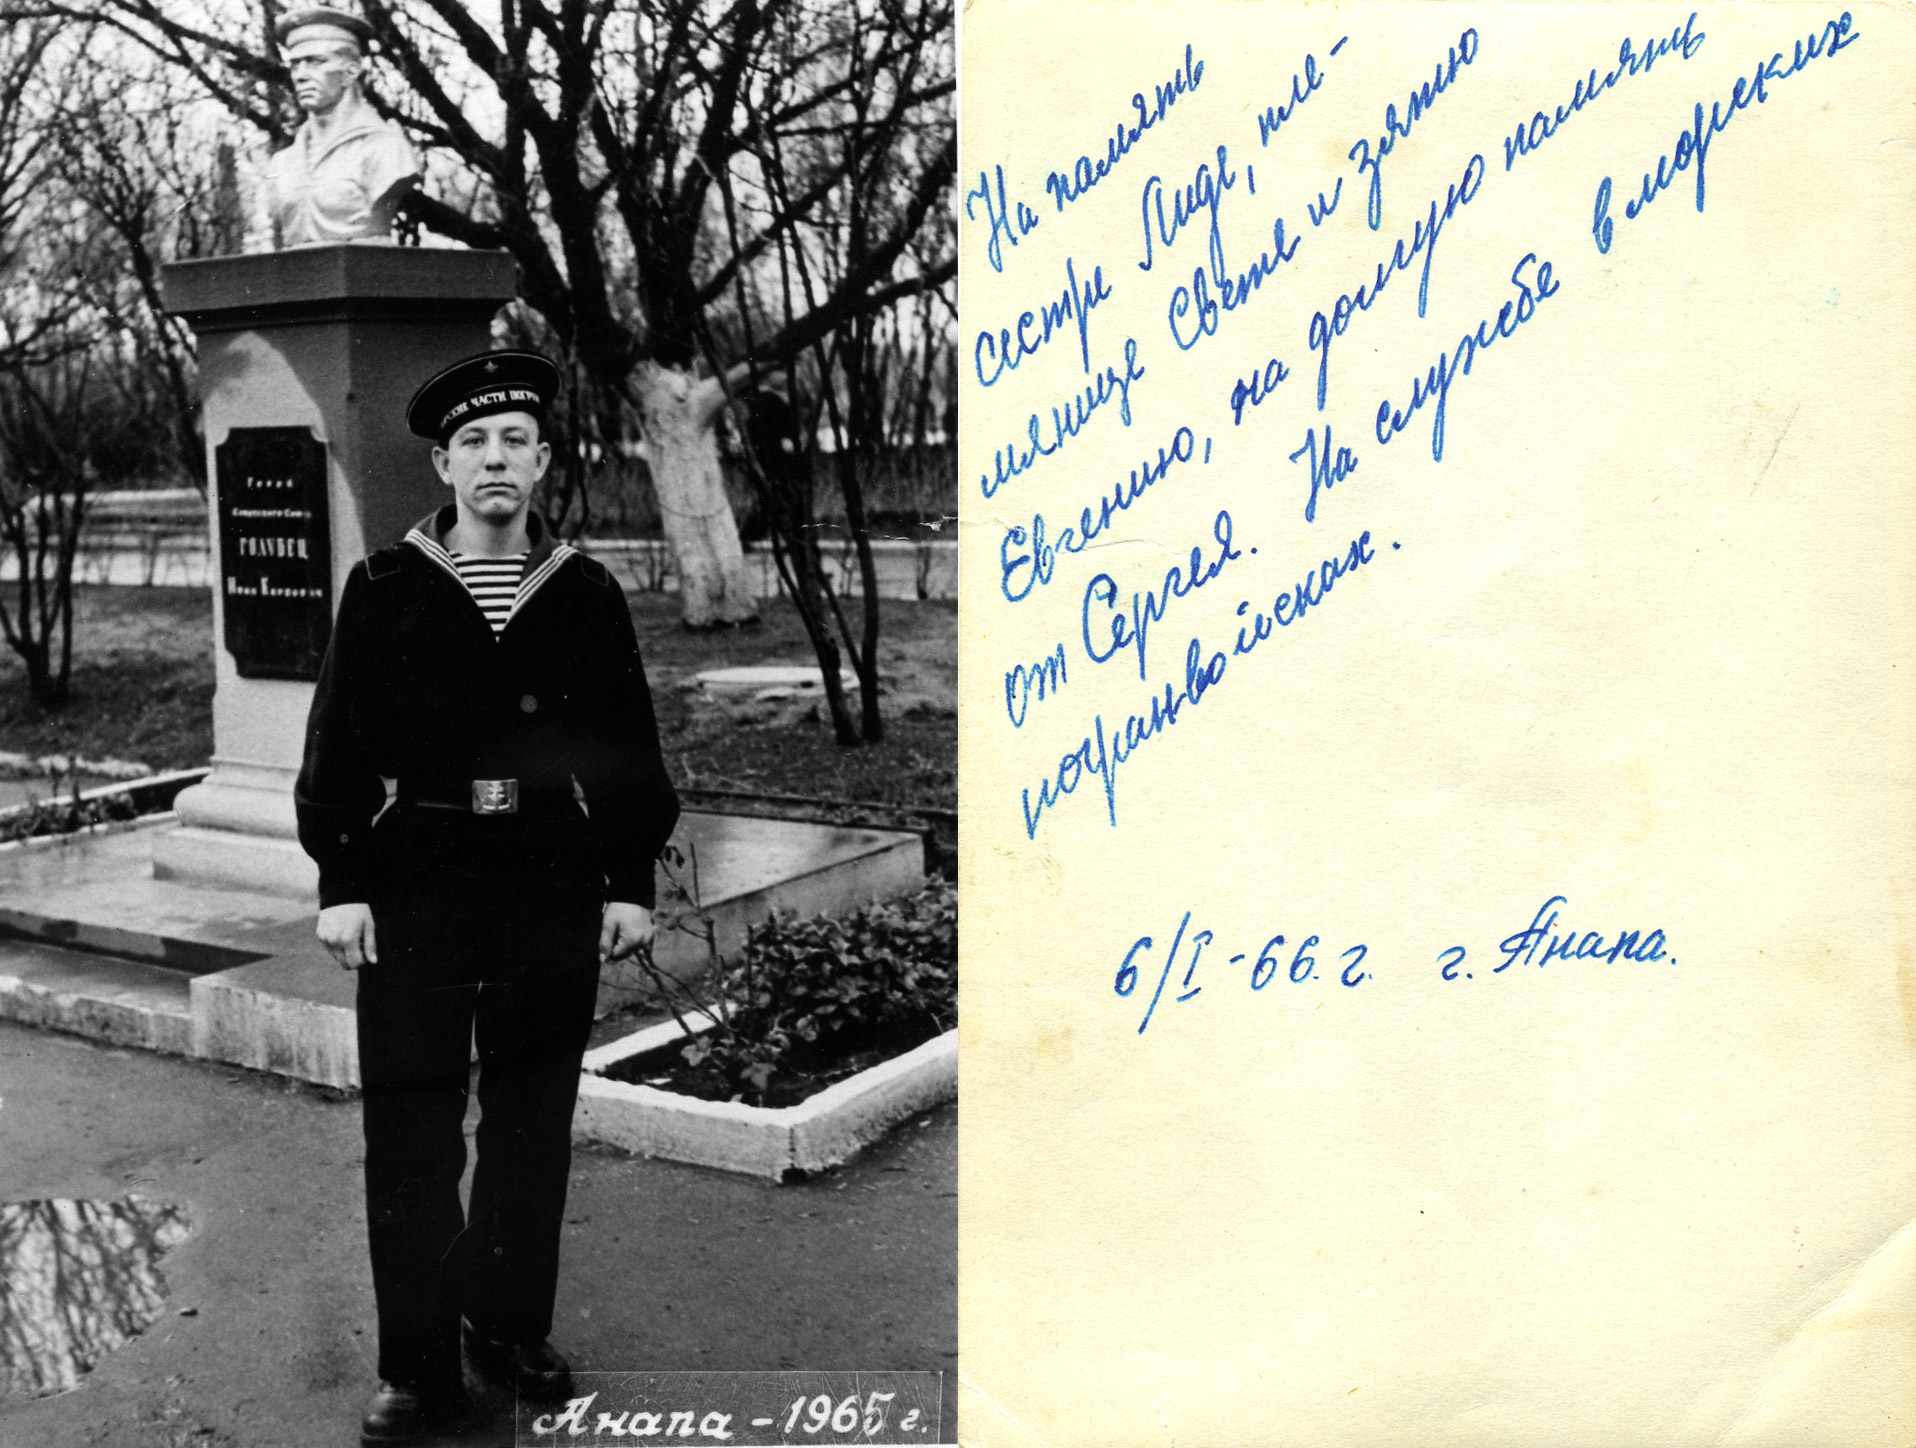 РСКИЕ ЧАСТИ ПОГРАН
Герой
Советского Союза
ГОЛУБЕЦ
Иван Карпович
Анапа - 1965 г.
На память
сестре Лиде, пле-
мянице Свете и зятю
Евгению, на долгую память
от Сергея. На службе в морских
погранвойсках.
6/I-66.г. г. Анапа.